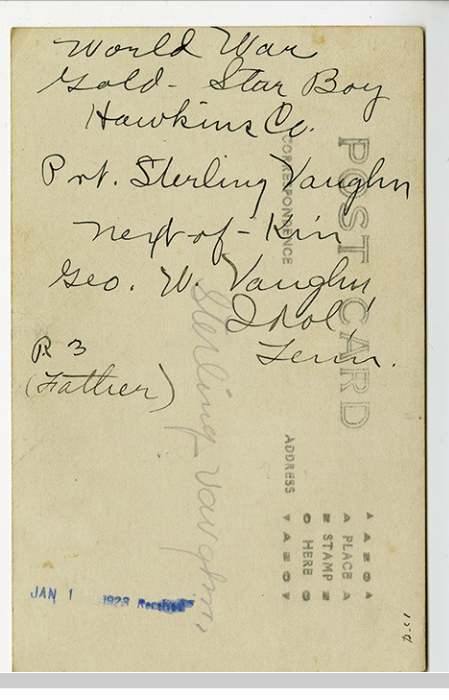 World War
Gold - Star Boy
Hawkins Co.
Pvt. Sterling Vaughn
next-of-Kin
Geo. W. Vaughn
Idol
Tenn.
R 3
(Father)
Sterling Vaughn,
POST CARD
CORRESPONDENCE
ADDRESS
PLACE
STAMP
HERE
JAN 1 1928 Received